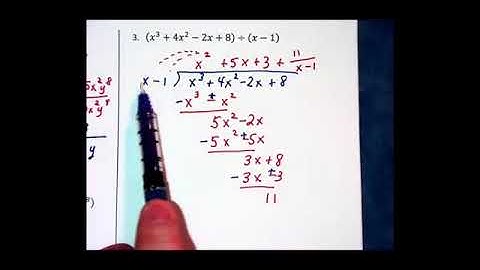 3. (x³ + 4x² − 2x + 8) ÷ (x − 1)
x² + 5x + 3 + 11/(x−1)
x − 1 ) x³ + 4x² − 2x + 8
− x³ ± x²
5x² − 2x
− 5x² ± 5x
3x + 8
− 3x ± 3
11